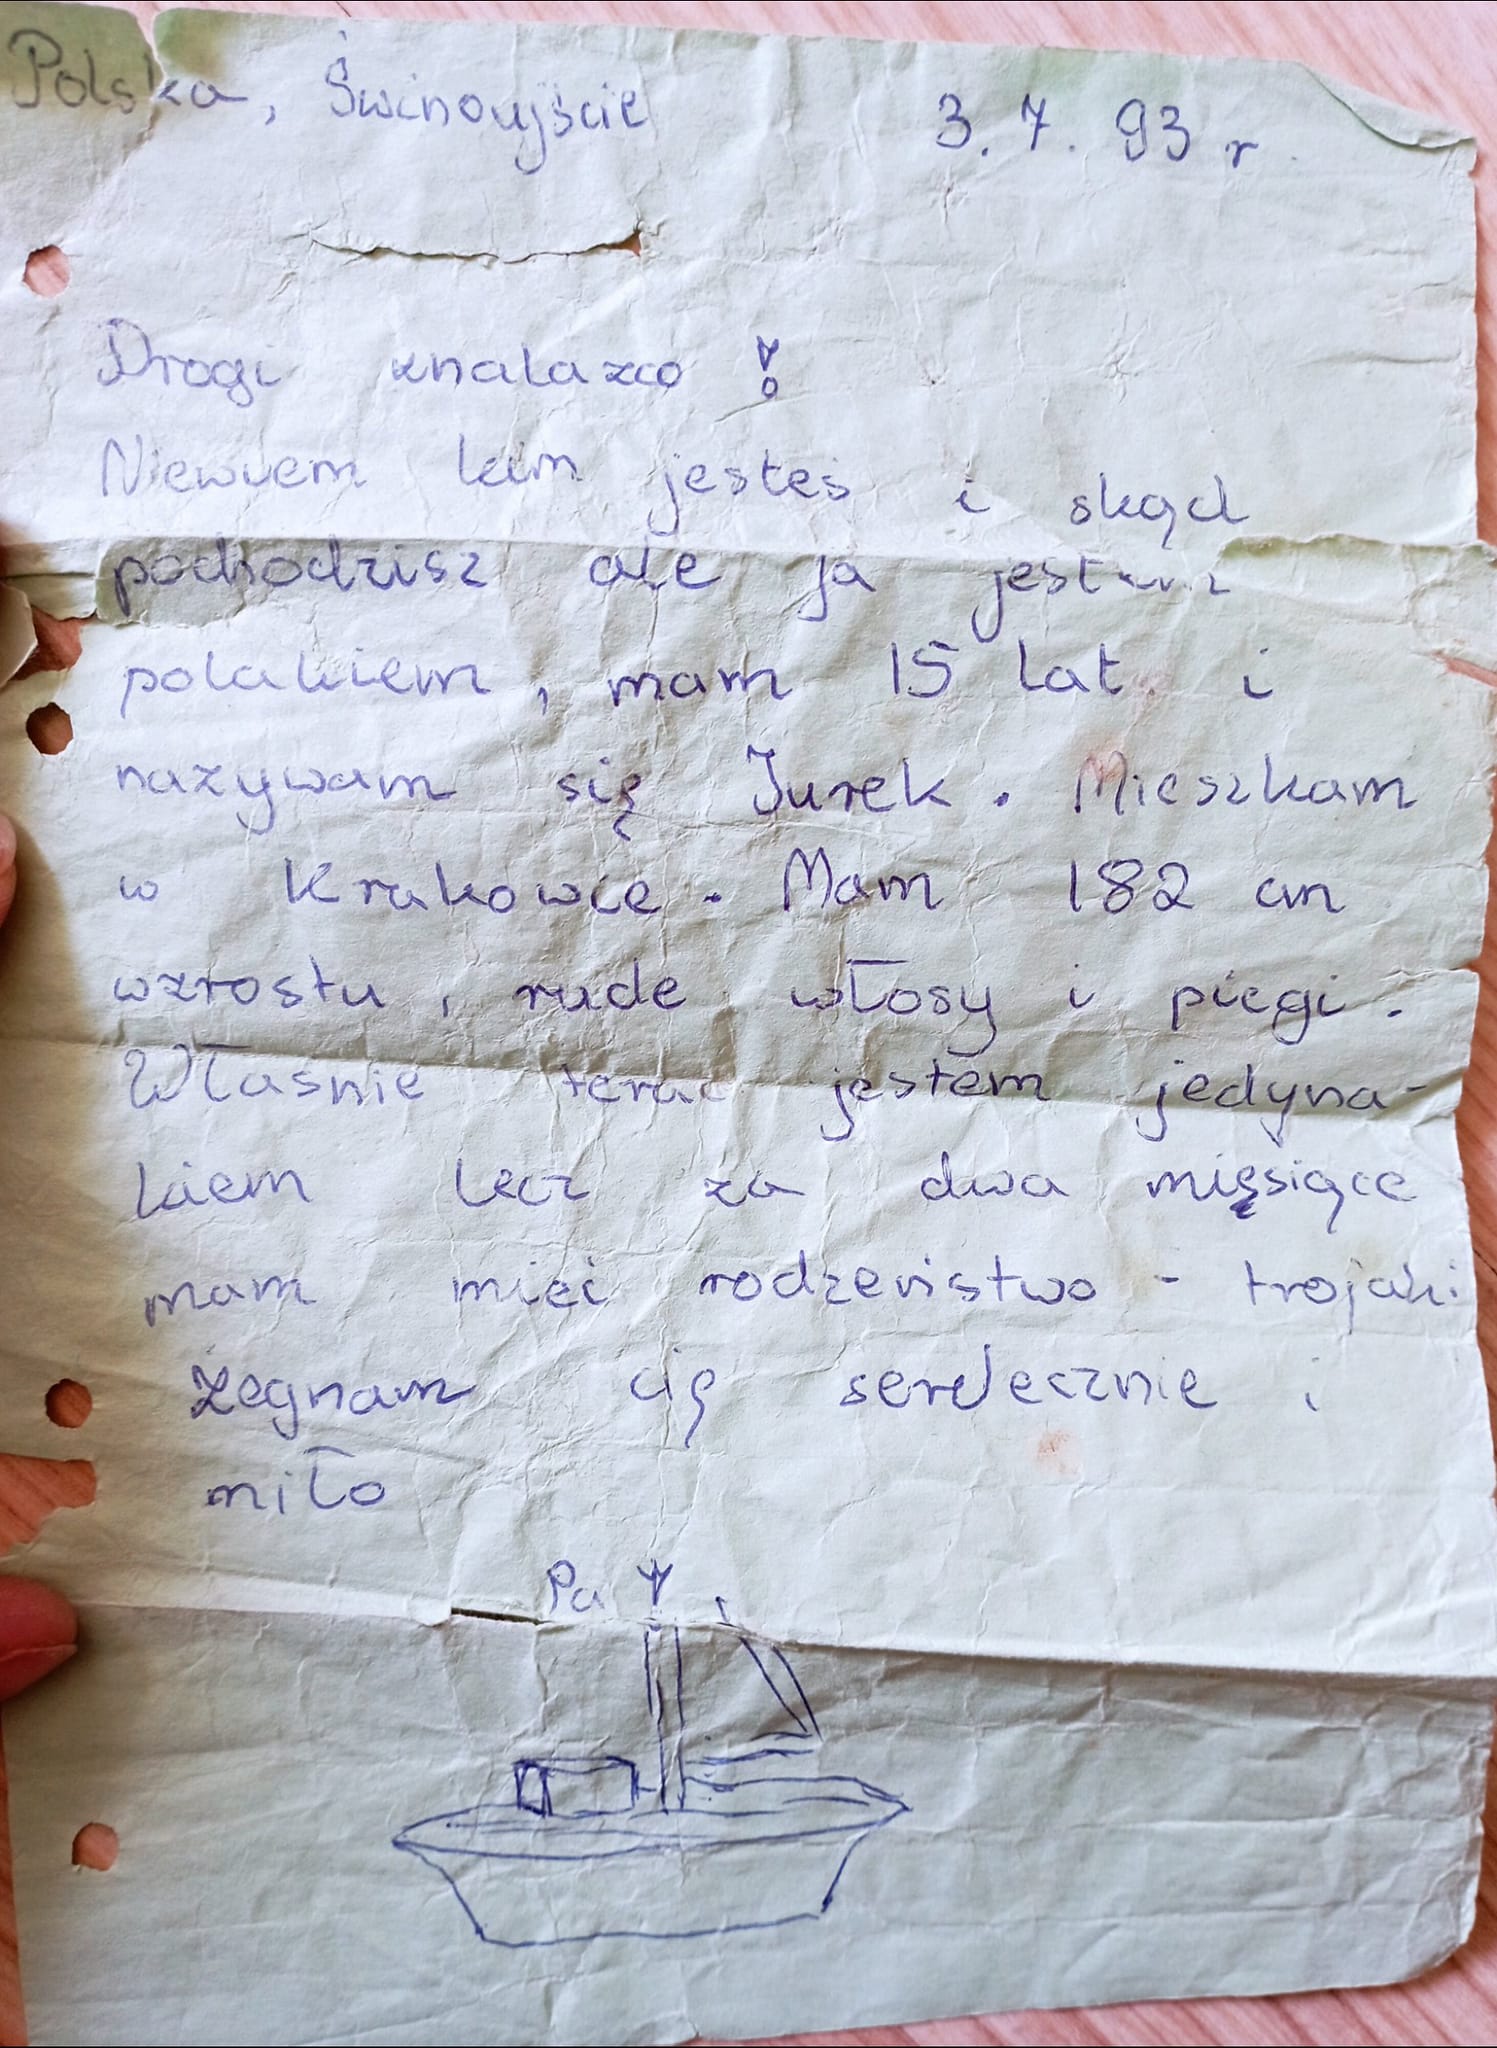 Polska, Świnoujście 3. 7. 93 r.
Drogi znalazco !
Niewiem kim jesteś i skąd
pochodzisz ale ja jestem
polakiem, mam 15 lat i
nazywam się Jurek. Mieszkam
w Krakowie. Mam 182 cm
wzrostu, rude włosy i piegi.
Właśnie teraz jestem jedyna-
kiem lecz za dwa mięsiące
mam mieć rodzeństwo - trojaki
żegnam cię serdecznie i
miło
Pa